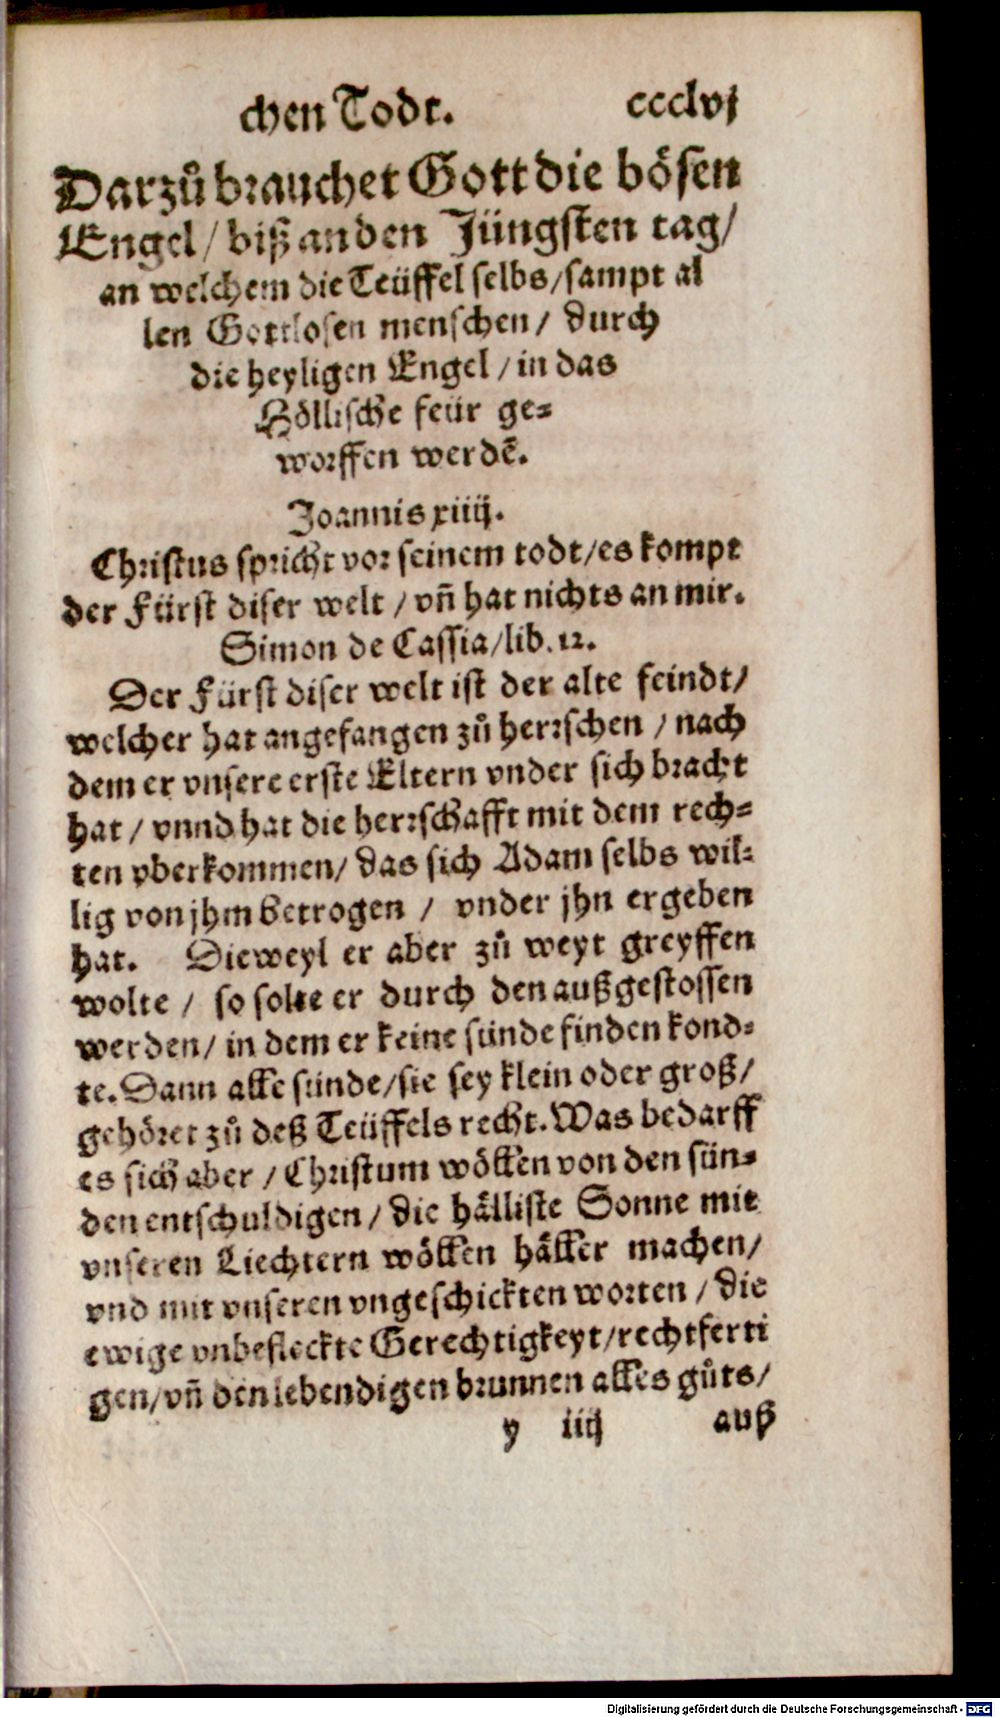 chen Todt. ccclvj
Darzů brauchet Gott die bösen
Engel / biß an den Jüngsten tag /
an welchem die Teüffel selbs / sampt al
len Gottlosen menschen / durch
die heyligen Engel / in das
Höllische feür ge=
worffen werdē.
Joannis xiiij.
Christus spricht vor seinem todt / es kompt
der Fürst diser welt / vñ hat nichts an mir.
Simon de Cassia / lib. 12.
Der Fürst diser welt ist der alte feindt /
welcher hat angefangen zů herrschen / nach
dem er vnsere erste Eltern vnder sich bracht
hat / vnnd hat die herrschafft mit dem rech=
ten vberkommen / das sich Adam selbs wil=
lig von jhm betrogen / vnder jhn ergeben
hat. Dieweyl er aber zů weyt greyffen
wolte / so solte er durch den außgestossen
werden / in dem er keine sünde finden kond=
te. Dann alle sünde / sie sey klein oder groß /
gehöret zů deß Teüffels recht. Was bedarff
es sich aber / Christum wöllen von den sün=
den entschuldigen / die hälliste Sonne mit
vnseren Liechtern wöllen häller machen /
vnd mit vnseren vngeschickten worten / die
ewige vnbefleckte Gerechtigkeyt / rechtferti
gen / vñ den lebendigen brunnen alles gůts /
y iiij auß
Digitalisierung gefördert durch die Deutsche Forschungsgemeinschaft - DFG